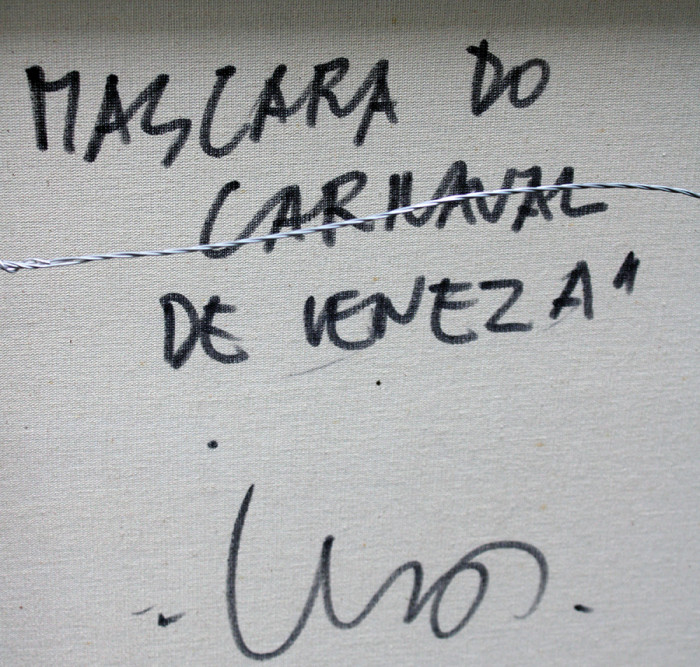 MASCARA DO
CARNAVAL
DE VENEZA"